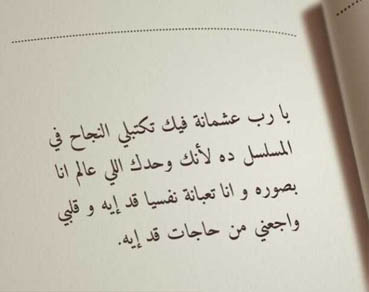 يا رب عشمانة فيك تكتبلي النجاح في
المسلسل ده لأنك وحدك اللي عالم انا
بصوره و انا تعبانة نفسيا قد إيه و قلبي
واجعني من حاجات قد إيه.